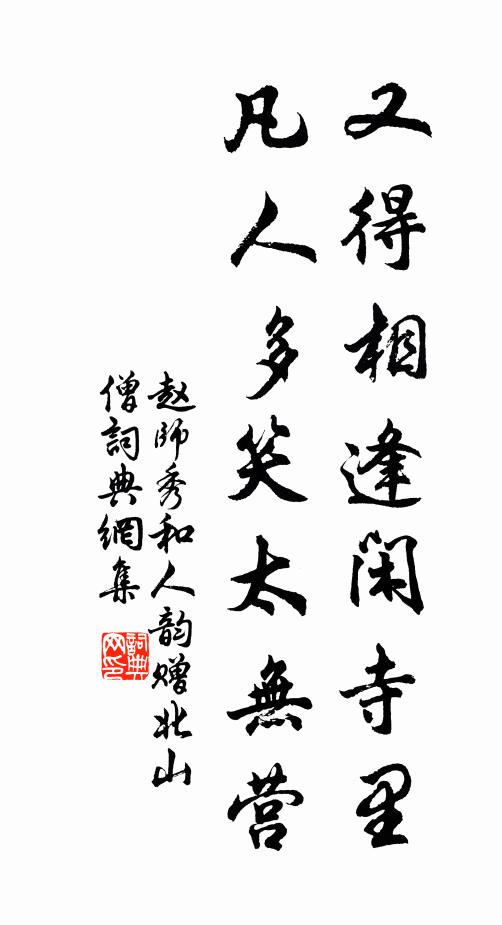 又得相逢闲寺里
凡人多笑太無营
赵師秀和人韵赠北山
僧詞典網集
詞典
网印